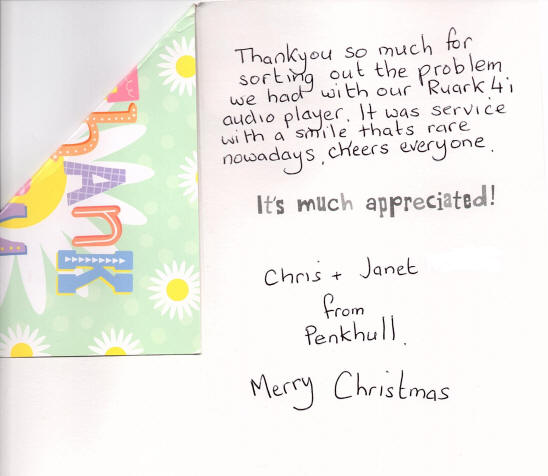 Thankyou so much for
sorting out the problem
we had with our Ruark 4i
audio player. It was service
with a smile thats rare
nowadays, cheers everyone.
It's much appreciated!
Chris + Janet
from
Penkhull.
Merry Christmas
hANK